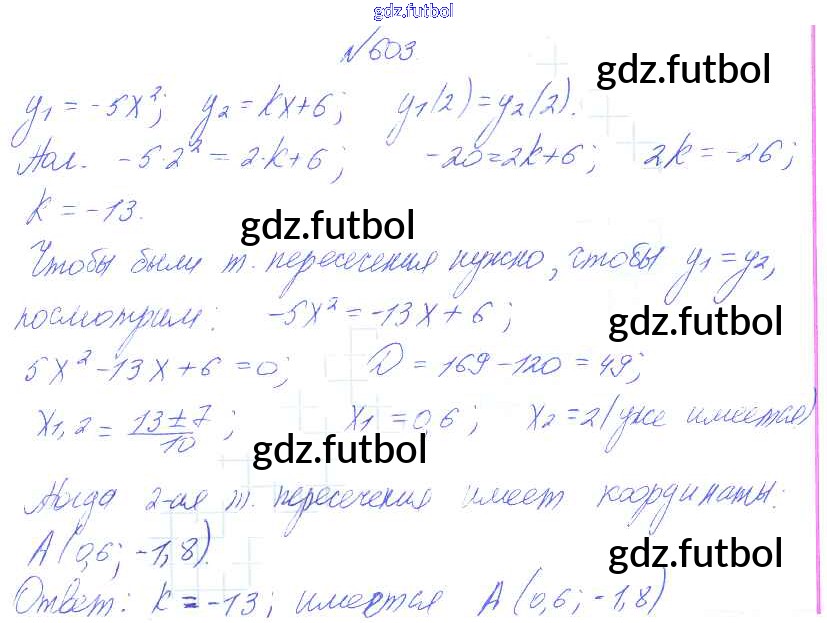 gdz.futbol
№603
gdz.futbol
y₁ = -5x²; y₂ = kx+6; y₁(2)=y₂(2).
-5·2² = 2·k+6; -20=2k+6; 2k=-26;
k = -13.
gdz.futbol
Чтобы были т. пересечения нужно, чтобы y₁=y₂,
посмотрим: -5x² = -13x+6;
gdz.futbol
5x²-13x+6=0; D=169-120=49;
x₁,₂ = 13±7/10; x₁=0,6; x₂=2 (уже имеется)
gdz.futbol
Тогда 2-ая т. пересечения имеет координаты:
A(0,6; -1,8).
gdz.futbol
Ответ: k=-13; имеется A(0,6; -1,8)